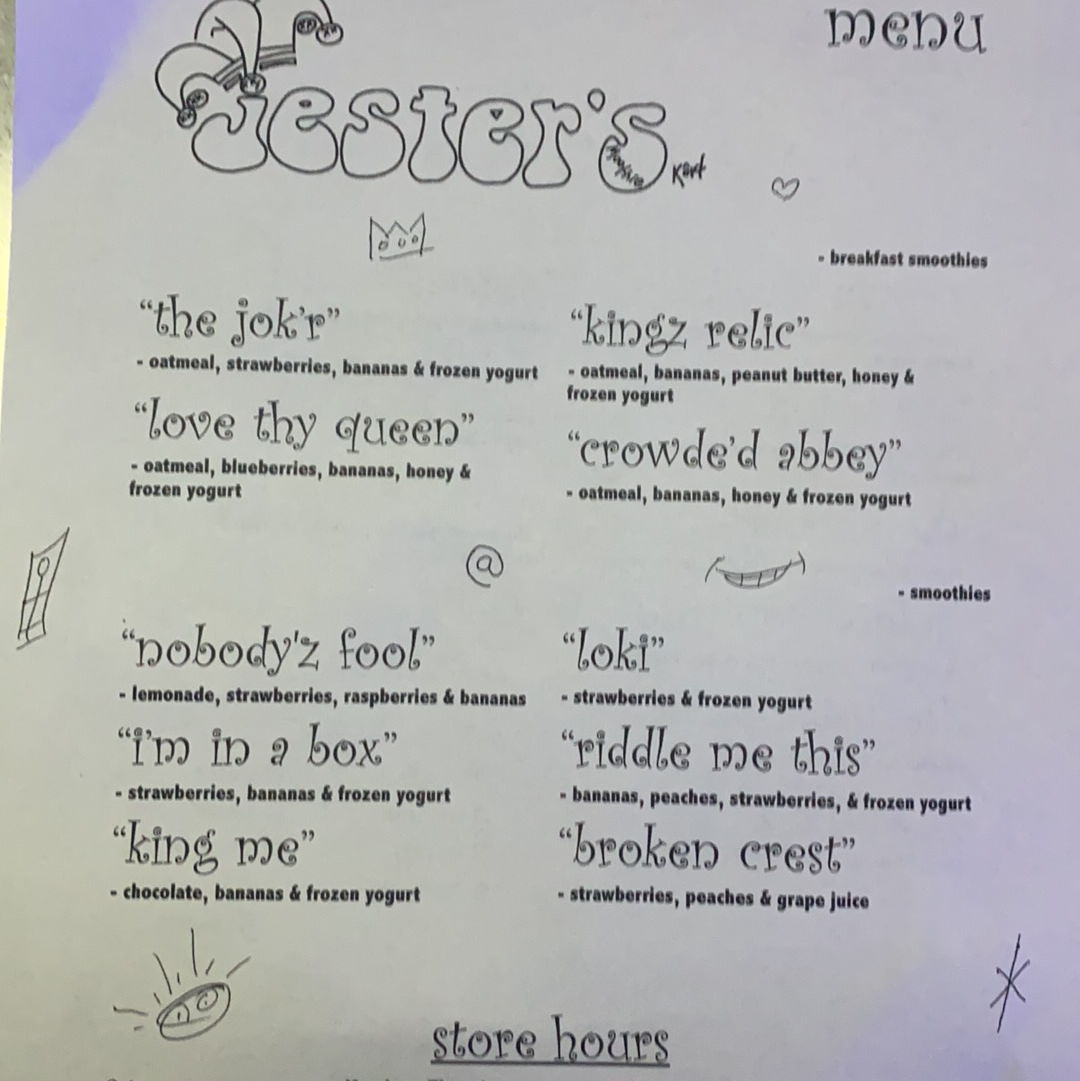 menu
Jester's
Kart
- breakfast smoothies
“the jok'r”
- oatmeal, strawberries, bananas & frozen yogurt
“love thy queen”
- oatmeal, blueberries, bananas, honey &
frozen yogurt
“kingz relic”
- oatmeal, bananas, peanut butter, honey &
frozen yogurt
“crowde'd abbey”
- oatmeal, bananas, honey & frozen yogurt
@
- smoothies
“nobody'z fool”
- lemonade, strawberries, raspberries & bananas
“i'm in a box”
- strawberries, bananas & frozen yogurt
“king me”
- chocolate, bananas & frozen yogurt
“loki”
- strawberries & frozen yogurt
“riddle me this”
- bananas, peaches, strawberries, & frozen yogurt
“broken crest”
- strawberries, peaches & grape juice
store hours